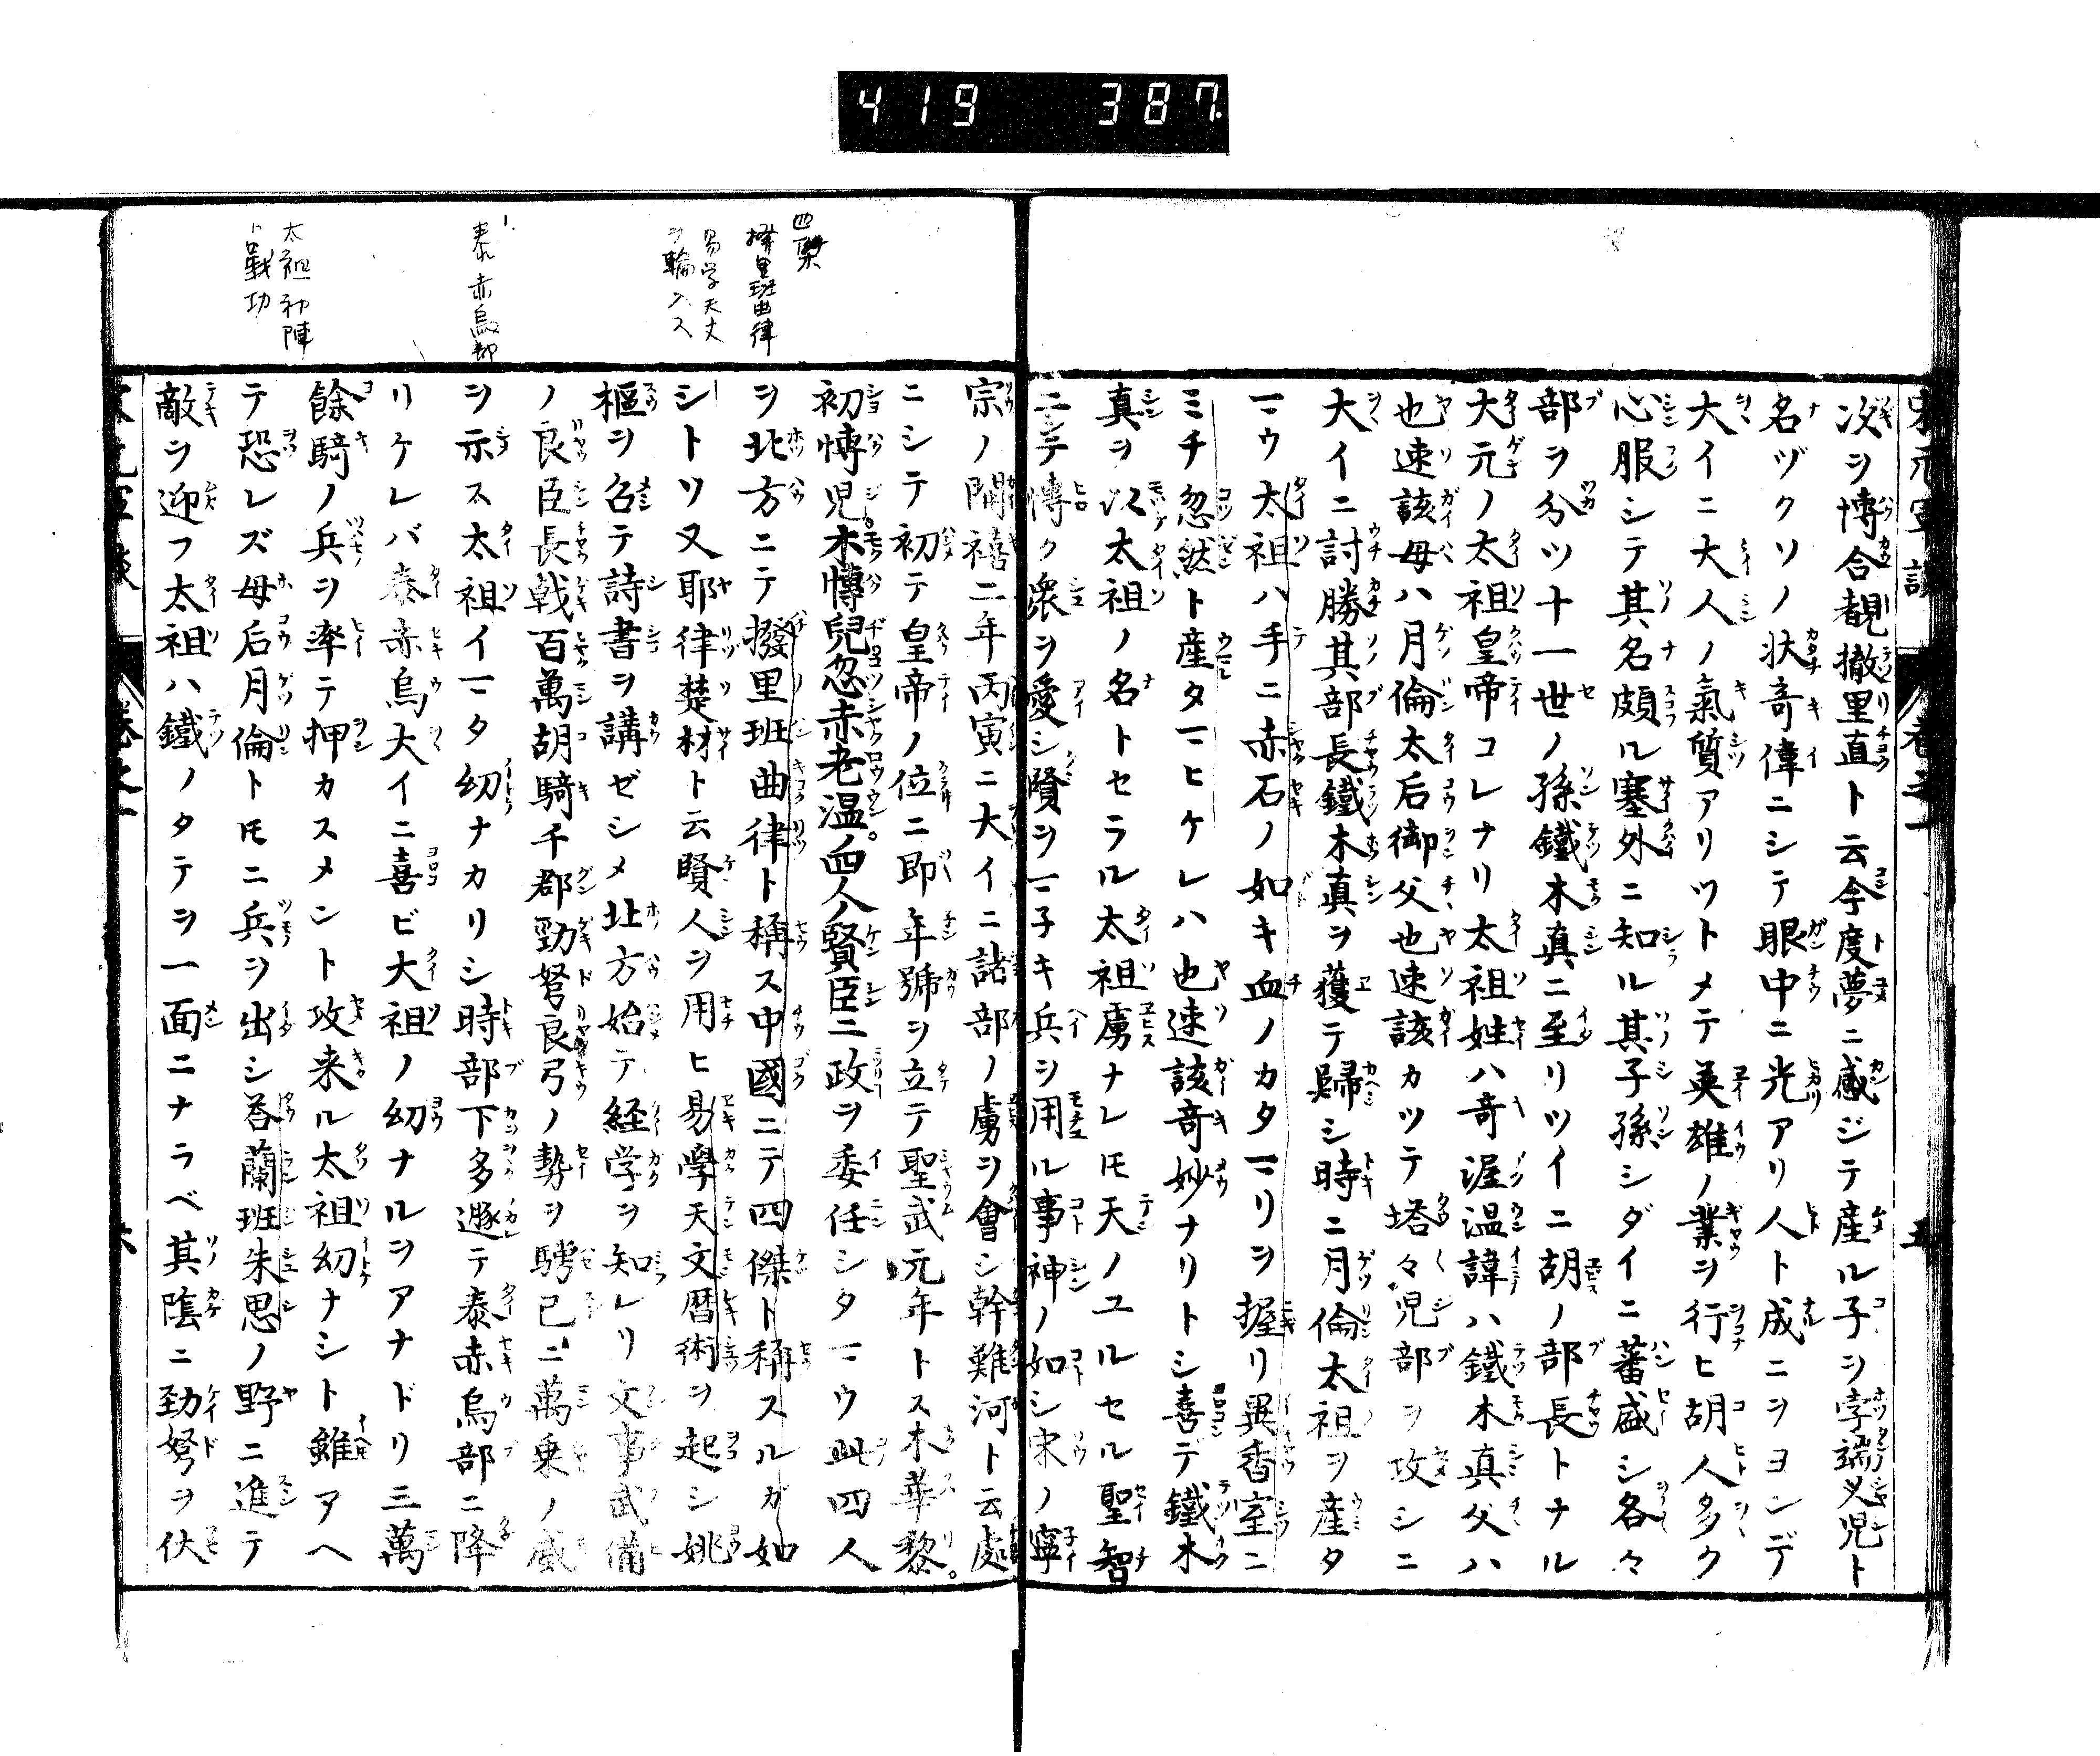 419 387.
次ヲ博合覩撤里直ト云今度夢ニ感ジテ産ル子ヲ孛端义児ト
名ヅクソノ状奇偉ニシテ眼中ニ光アリ人ト成ニヲヨンデ
大イニ大人ノ氣質アリツトメテ英雄ノ業ヲ行ヒ胡人多ク
心服シテ其名頗ル塞外ニ知ル其子孫シダイニ蕃盛シ各々
部ヲ分ツ十一世ノ孫鐵木真ニ至リツイニ胡ノ部長トナル
大元ノ太祖皇帝コレナリ太祖姓ハ奇渥温諱ハ鐵木真父ハ
也速該母ハ月倫太后御父也速該カツテ塔々児部ヲ攻シニ
大イニ討勝其部長鐵木真ヲ獲テ歸シ時ニ月倫太祖ヲ産タ
マウ太祖ハ手ニ赤石ノ如キ血ノカタマリヲ握リ異香室ニ
ミチ忽然ト産タマヒケレハ也速該奇妙ナリトシ喜テ鐵木
真ヲ以太祖ノ名トセラル太祖虜ナレ𪜈天ノユルセル聖智
ニシテ博ク衆ヲ愛シ賢ヲマ子キ兵ヲ用ル事神ノ如シ宋ノ寧
宗ノ開禧二年丙寅ニ大イニ諸部ノ虜ヲ會シ幹難河ト云處
ニシテ初テ皇帝ノ位ニ即年號ヲ立テ聖武元年トス木華黎。
初愽児。木愽兒忽赤老温。ノ四人ノ賢臣ニ政ヲ委任シタマウ此四人
ヲ北方ニテ撥里班曲律ト稱ス中國ニテ四傑ト稱スルガ如
シトソ又耶律楚材ト云賢人ヲ用ヒ易學天文暦術ヲ起シ姚
樞ヲ召テ詩書ヲ講ゼシメ北方始テ経学ヲ知レリ文事武備
ノ良臣長戟百萬胡騎千郡勁弩良弓ノ勢ヲ騁已ニ萬乗ノ威
ヲ示ス太祖イマタ幼ナカリシ時部下多遯テ泰赤烏部ニ降
リケレバ泰赤烏大イニ喜ビ大祖ノ幼ナルヲアナドリ三萬
餘騎ノ兵ヲ率テ押カスメント攻来ル太祖幼ナシト雖アヘ
テ恐レズ母后月倫ト𪜈ニ兵ヲ出シ荅蘭班朱思ノ野ニ進テ
敵ヲ迎フ太祖ハ鐵ノタテヲ一面ニナラベ其蔭ニ勁弩ヲ伏
四傑
撥里班曲律
易学天文
ヲ輸入ス
泰赤烏部
太祖初陣
ト戦功